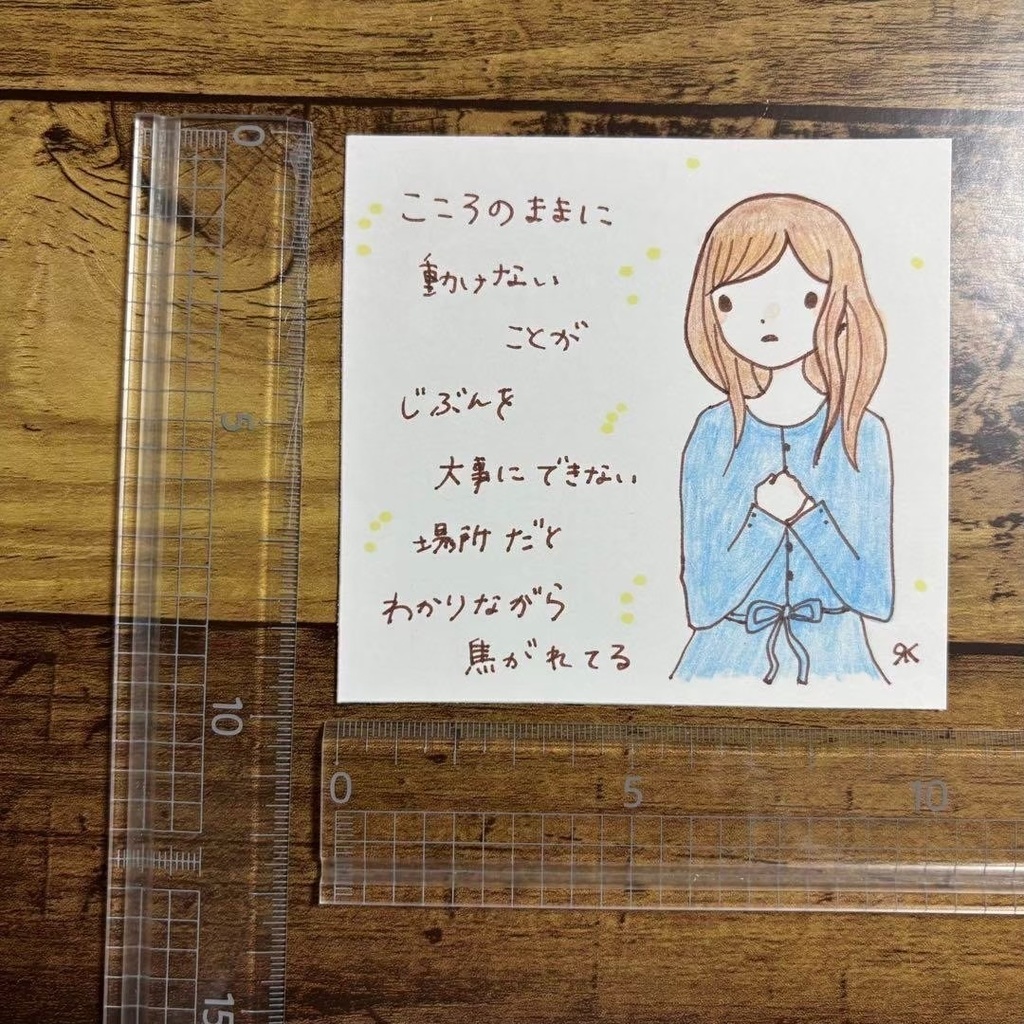 こころのままに
動けない
ことが
じぶんを
大事にできない
場所だと
わかりながら
焦がれてる
0
5
10
15
0
5
10